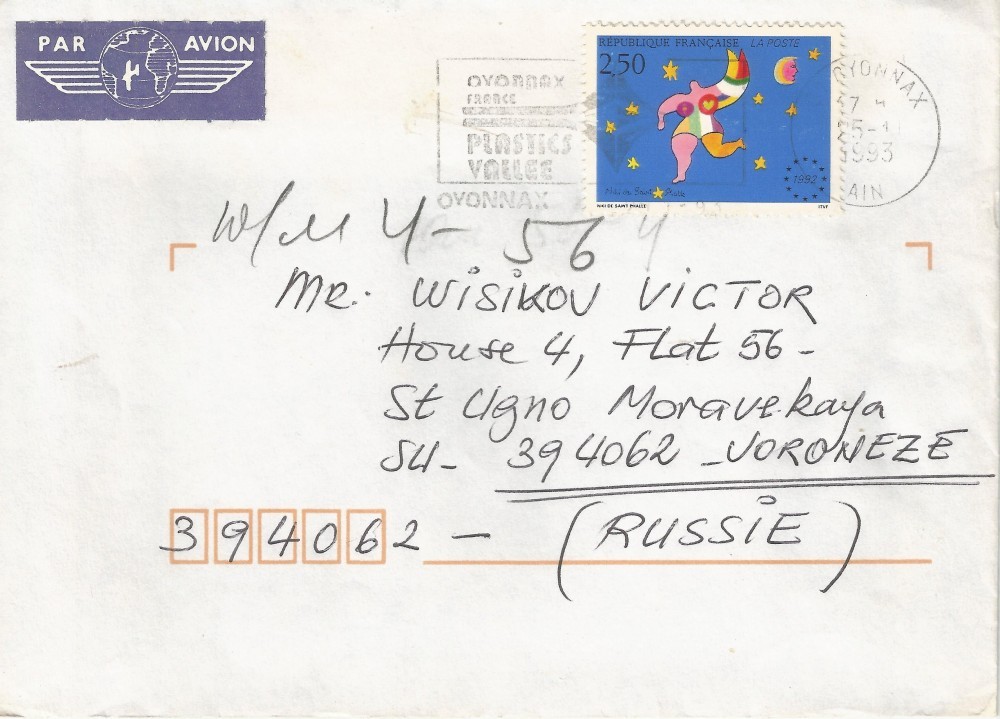 PAR AVION
RÉPUBLIQUE FRANÇAISE LA POSTE
2,50
1992
Niki de Saint Phalle
NIKI DE SAINT PHALLE ITVF
OYONNAX
FRANCE
PLASTICS
VALLEE
OYONNAX
OYONNAX
17 H
1993
AIN
4 - 56
Mr. WISIKOV VICTOR
House 4, Flat 56 -
St Ugno Moravekaya
SU - 394062 - VORONEZE
394062 - (RUSSIE)